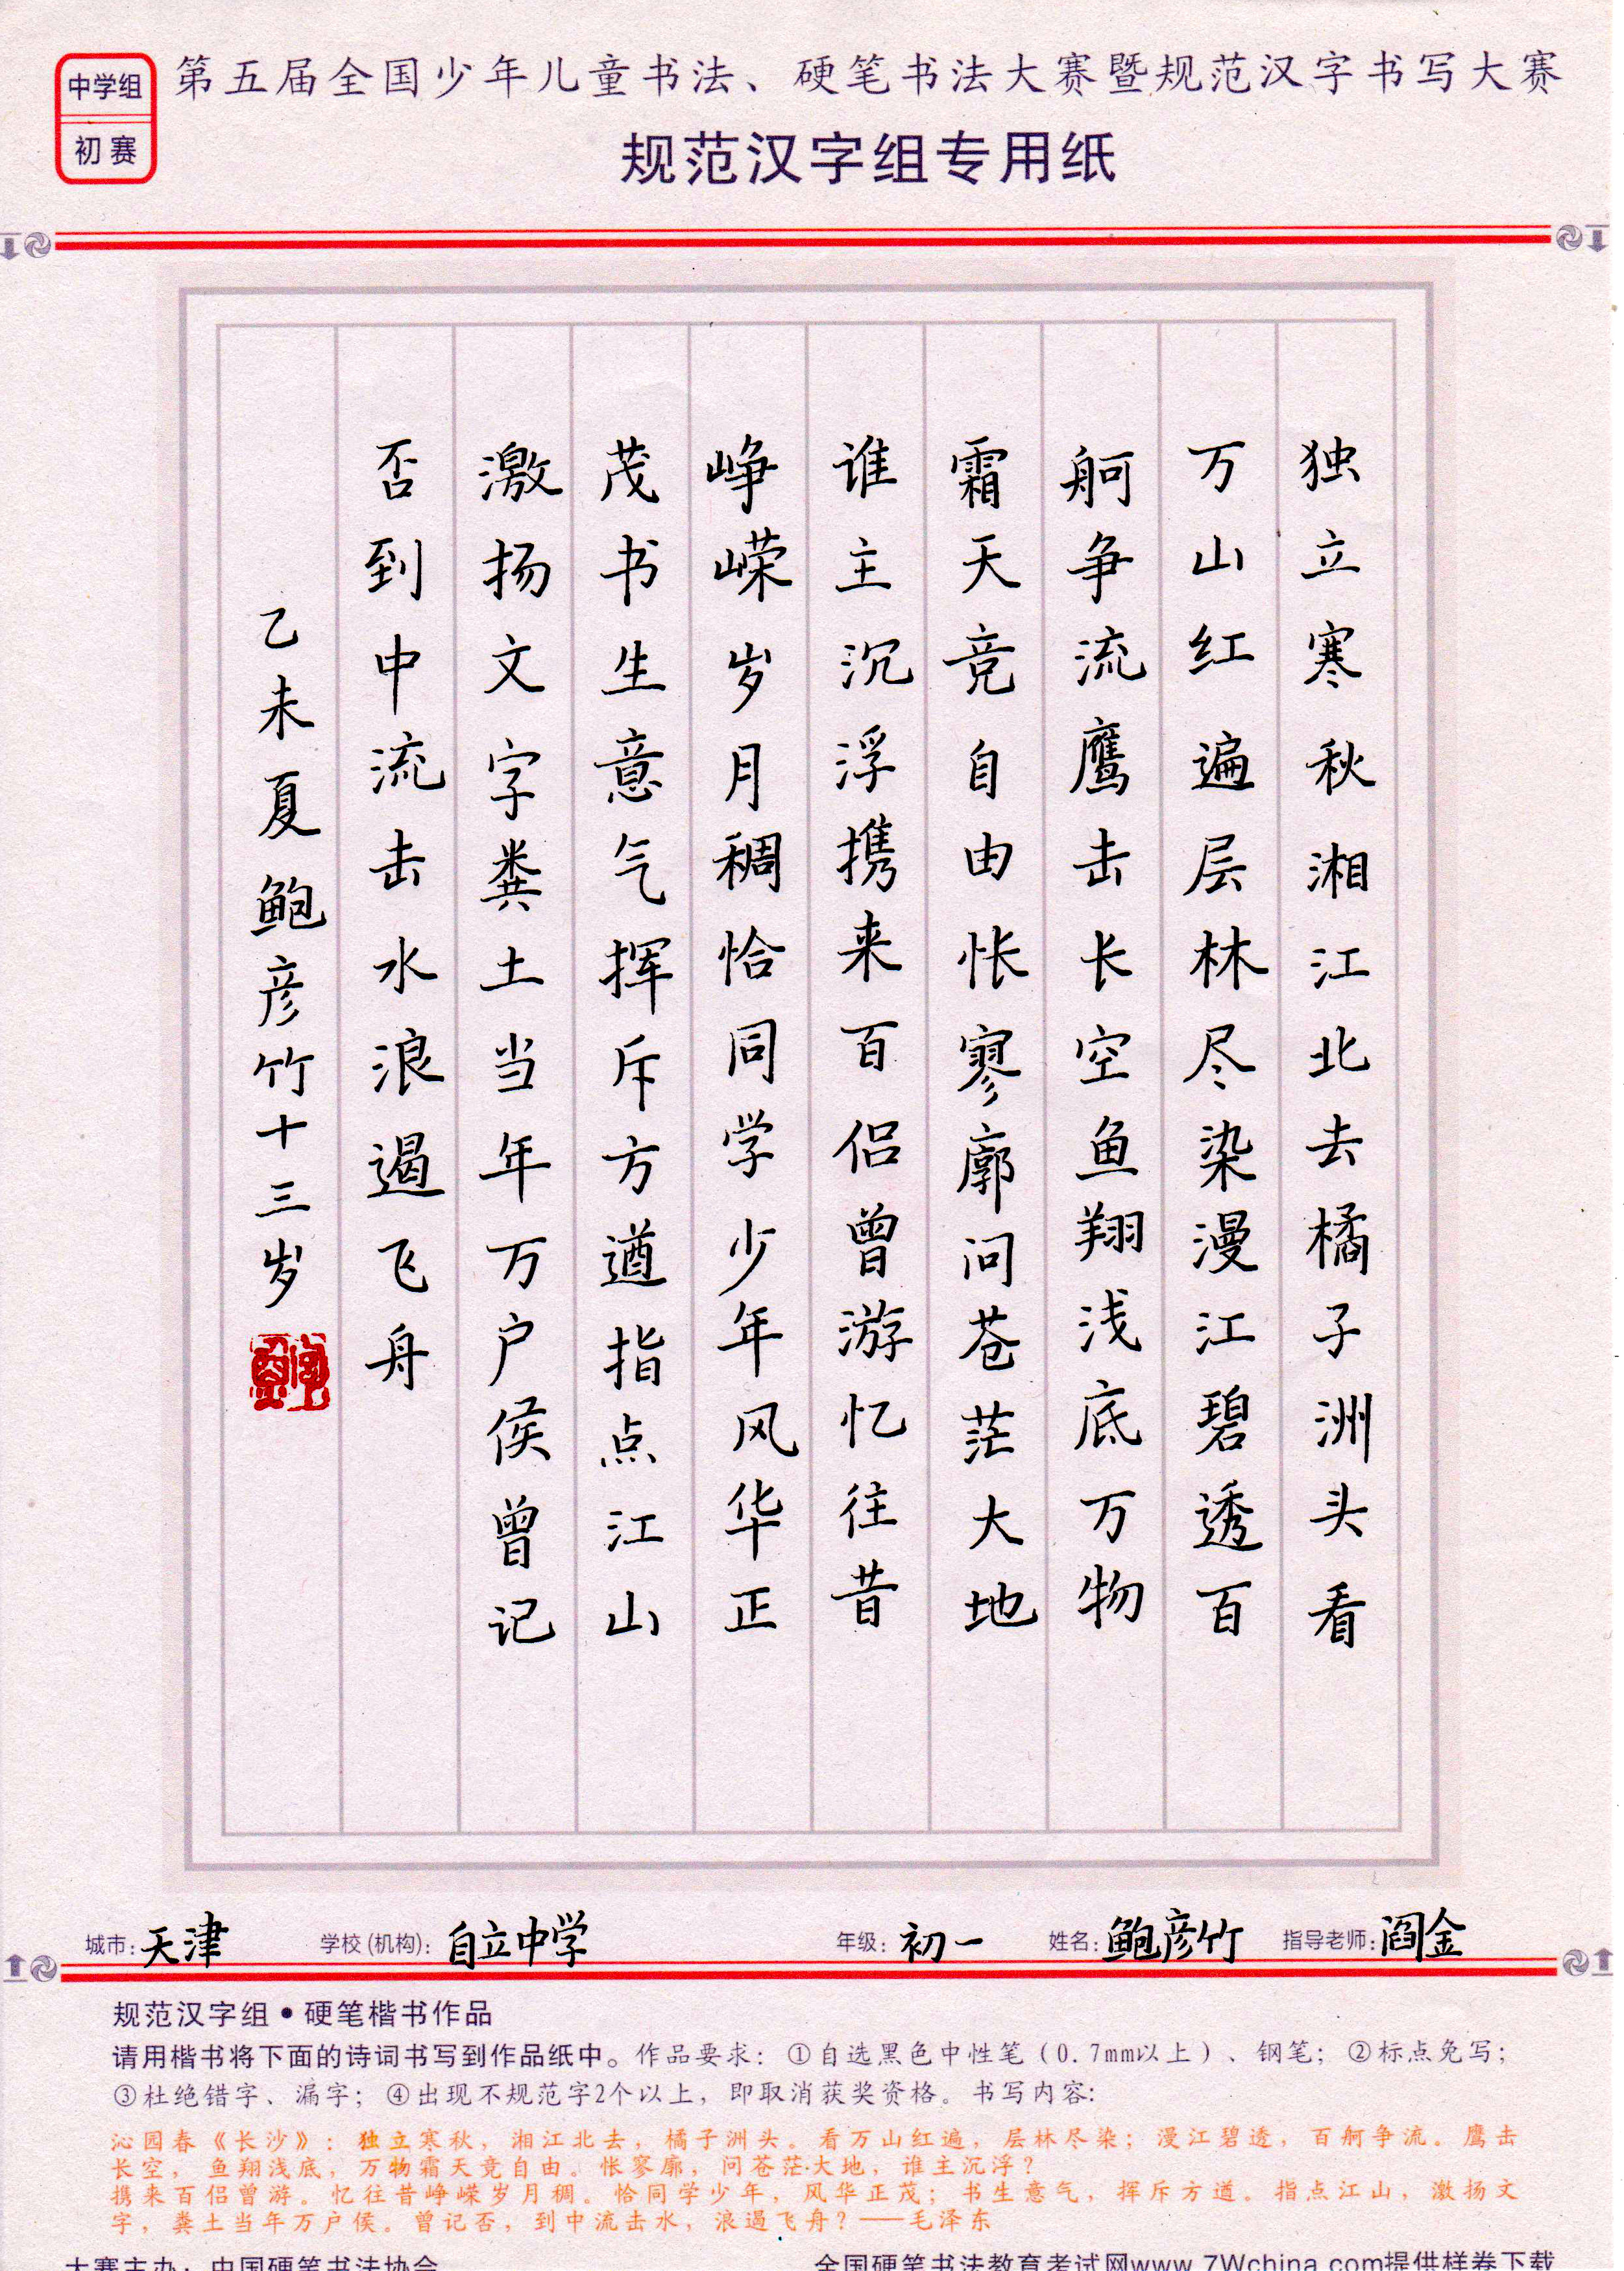 中学组
初赛
第五届全国少年儿童书法、硬笔书法大赛暨规范汉字书写大赛
规范汉字组专用纸
独立寒秋湘江北去橘子洲头看
万山红遍层林尽染漫江碧透百
舸争流鹰击长空鱼翔浅底万物
霜天竞自由怅寥廓问苍茫大地
谁主沉浮携来百侣曾游忆往昔
峥嵘岁月稠恰同学少年风华正
茂书生意气挥斥方遒指点江山
激扬文字粪土当年万户侯曾记
否到中流击水浪遏飞舟
乙未夏鲍彦竹十三岁
城市：天津 学校(机构)：自立中学 年级：初一 姓名：鲍彦竹 指导老师：阎金
规范汉字组●硬笔楷书作品
请用楷书将下面的诗词书写到作品纸中。作品要求：①自选黑色中性笔（0.7mm以上）、钢笔；②标点免写；
③杜绝错字、漏字；④出现不规范字2个以上，即取消获奖资格。书写内容：
沁园春《长沙》：独立寒秋，湘江北去，橘子洲头。看万山红遍，层林尽染；漫江碧透，百舸争流。鹰击
长空，鱼翔浅底，万物霜天竞自由。怅寥廓，问苍茫·大地，谁主沉浮？
携来百侣曾游。忆往昔峥嵘岁月稠。恰同学少年，风华正茂；书生意气，挥斥方遒。指点江山，激扬文
字，粪土当年万户侯。曾记否，到中流击水，浪遏飞舟？——毛泽东
大赛主办：中国硬笔书法协会 全国硬笔书法教育考试网www.7Wchina.com提供样卷下载